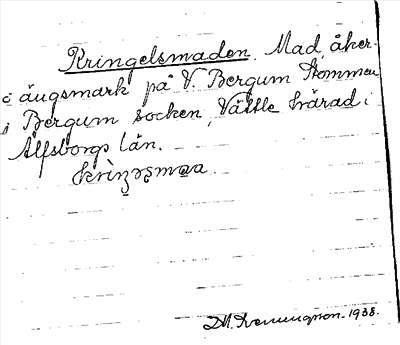 Kringelsmaden. Mad, åker-
o ängsmark på V. Bergum Kommun
i Bergum socken, Vättle härad i
Älfsborgs län.
1938.